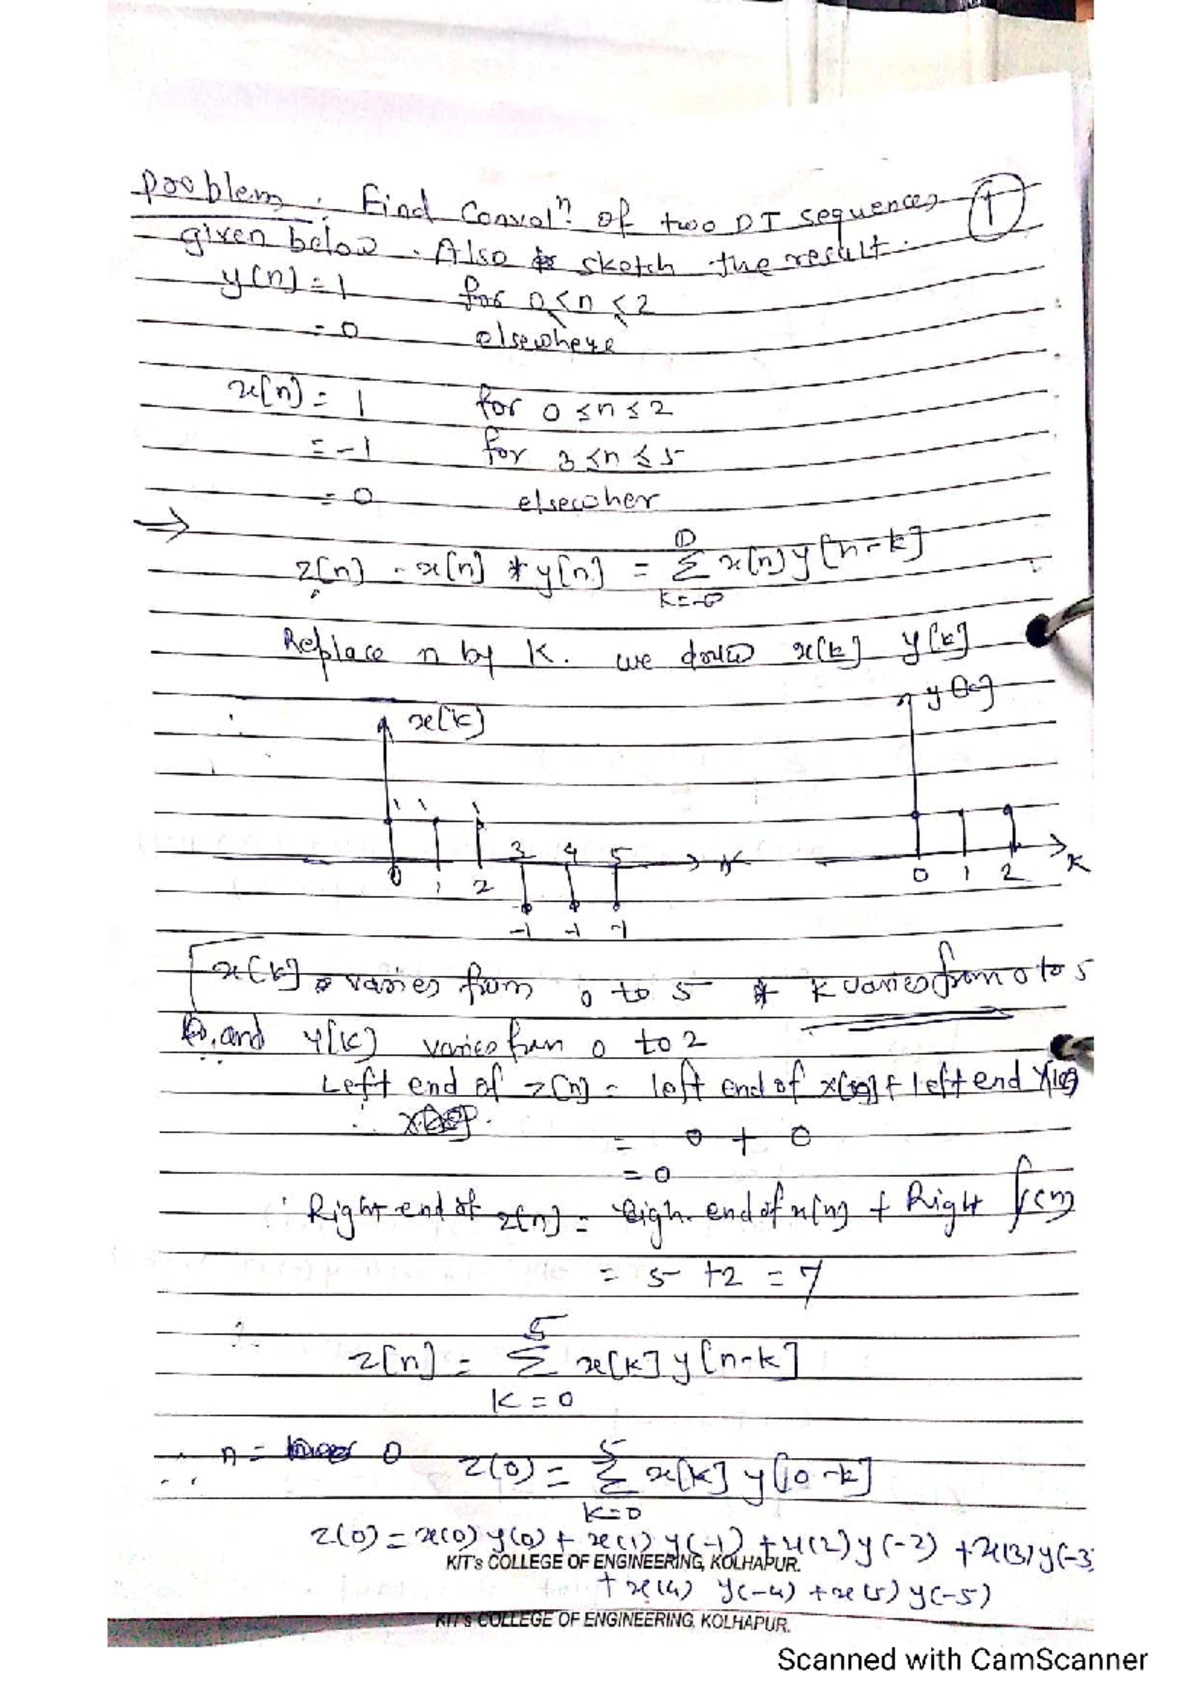 Problem : Find Convolⁿ. of two DT sequences ①
given below. Also sketch the result.
y(n) = 1 for 0 ≤ n ≤ 2
= 0 elsewhere
x[n] = 1 for 0 ≤ n ≤ 2
= -1 for 3 ≤ n ≤ 5
= 0 elsewher
⇒
z[n] = x[n] * y[n] = ∞ Σ k=-∞ x(n) y[n-k]
Replace n by k. we draw x[k] y[k]
x[k] y[k]
1 1 1
3 4 5
0 1 2 0 1 2 k
-1 -1 -1
x[k] varies from 0 to 5 k varies from 0 to 5
and y[k] varies from 0 to 2
Left end of z[n] = left end of + left end
= 0 + 0
= 0
∴ Right end of z[n] = end of x[n] + Right
= 5 + 2 = 7
∴ z[n] = 5 Σ k=0 x[k] y[n-k]
∴ n = 0 z(0) = 5 Σ k=0 x[k] y[0-k]
z(0) = x(0) y(0) + x(1) y(-1) + x(2) y(-2) + x(3) y(-3)
KIT's COLLEGE OF ENGINEERING, KOLHAPUR.
+ x(4) y(-4) + x(5) y(-5)
KIT's COLLEGE OF ENGINEERING, KOLHAPUR.
Scanned with CamScanner